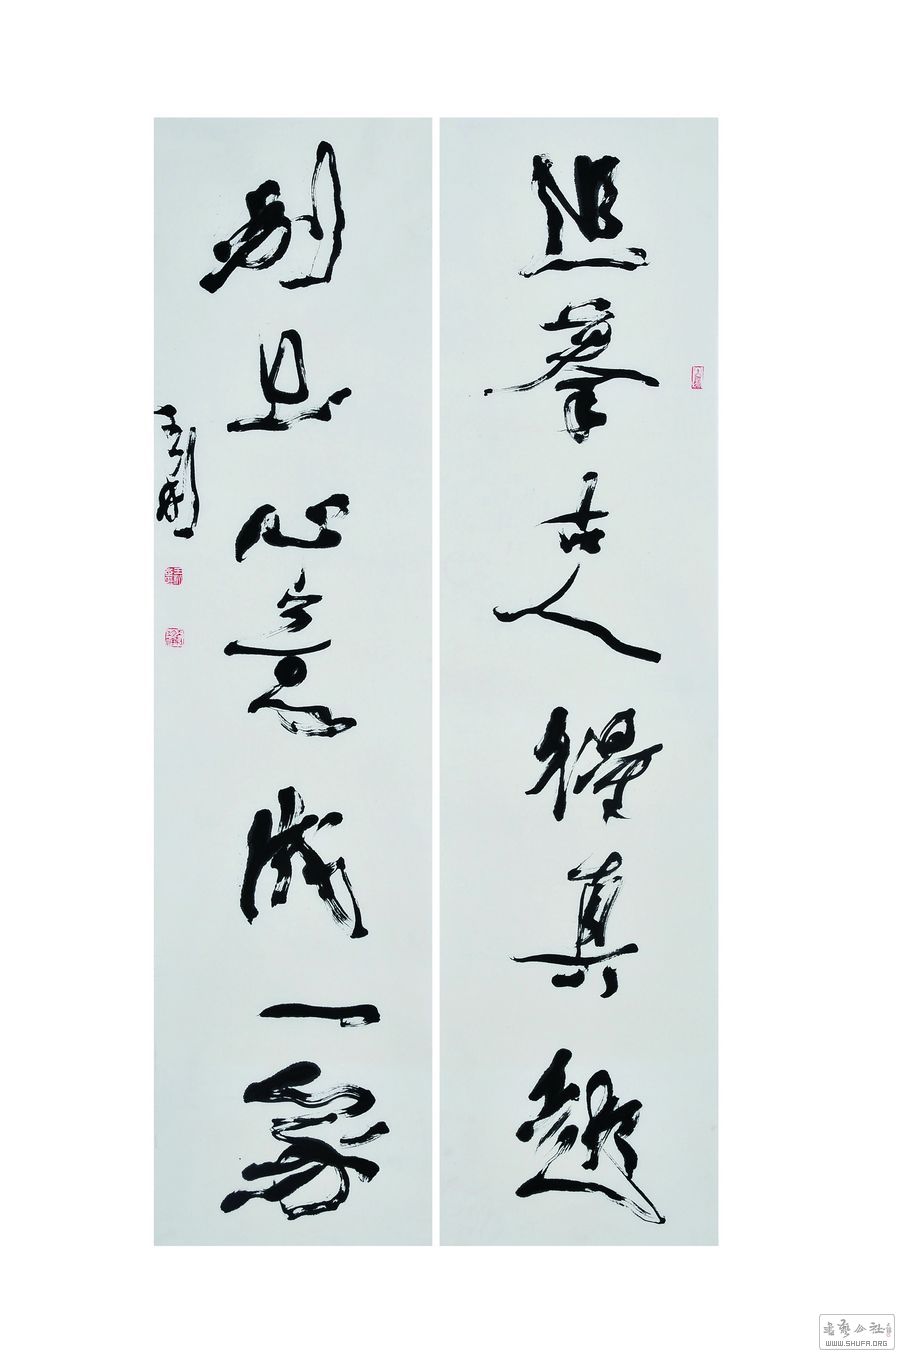 追摹古人得真趣
别具心意成一家
书艺公社
WWW.SHUFA.ORG